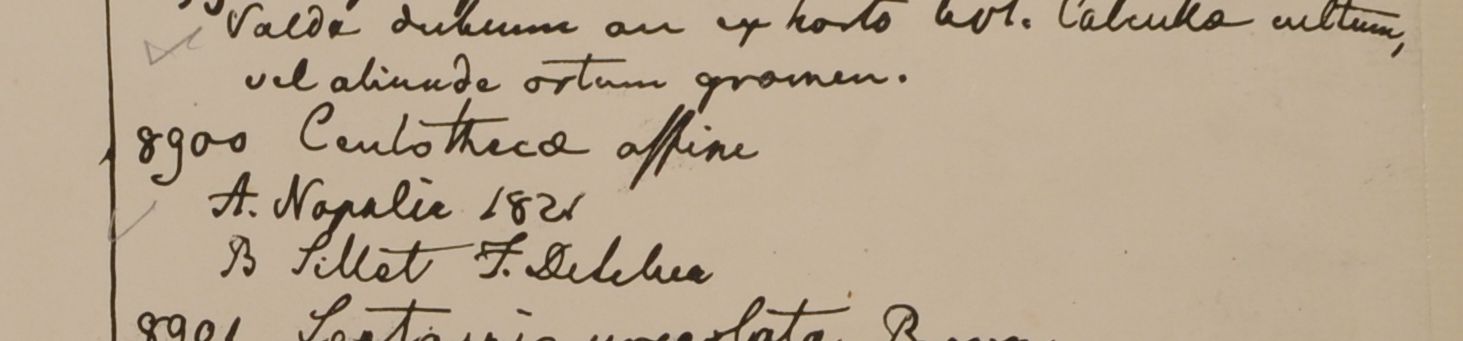 Valde dubium an ex horto bot. Calcutta cultum,
vel aliunde ortum gramen.
8900 Centotheca affine
A. Napalia 1821
B Sillet F. De Silva
8901